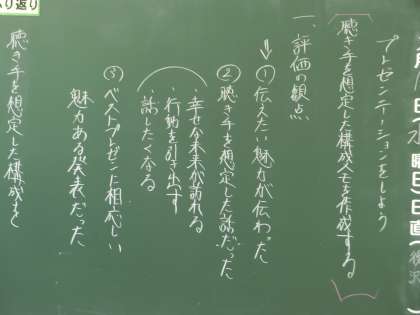 プレゼンテーションをしよう
聴き手を想定した構成メモを作成する。
一、評価の観点
① 伝えたい魅力が伝わった
② 聴き手を想定した話だった
幸せな未来が訪れる
行動を引き出す
話したくなる
③ ベストプレゼンに相応しい
魅力ある発表だった
ふり返り
聴き手を想定した構成を